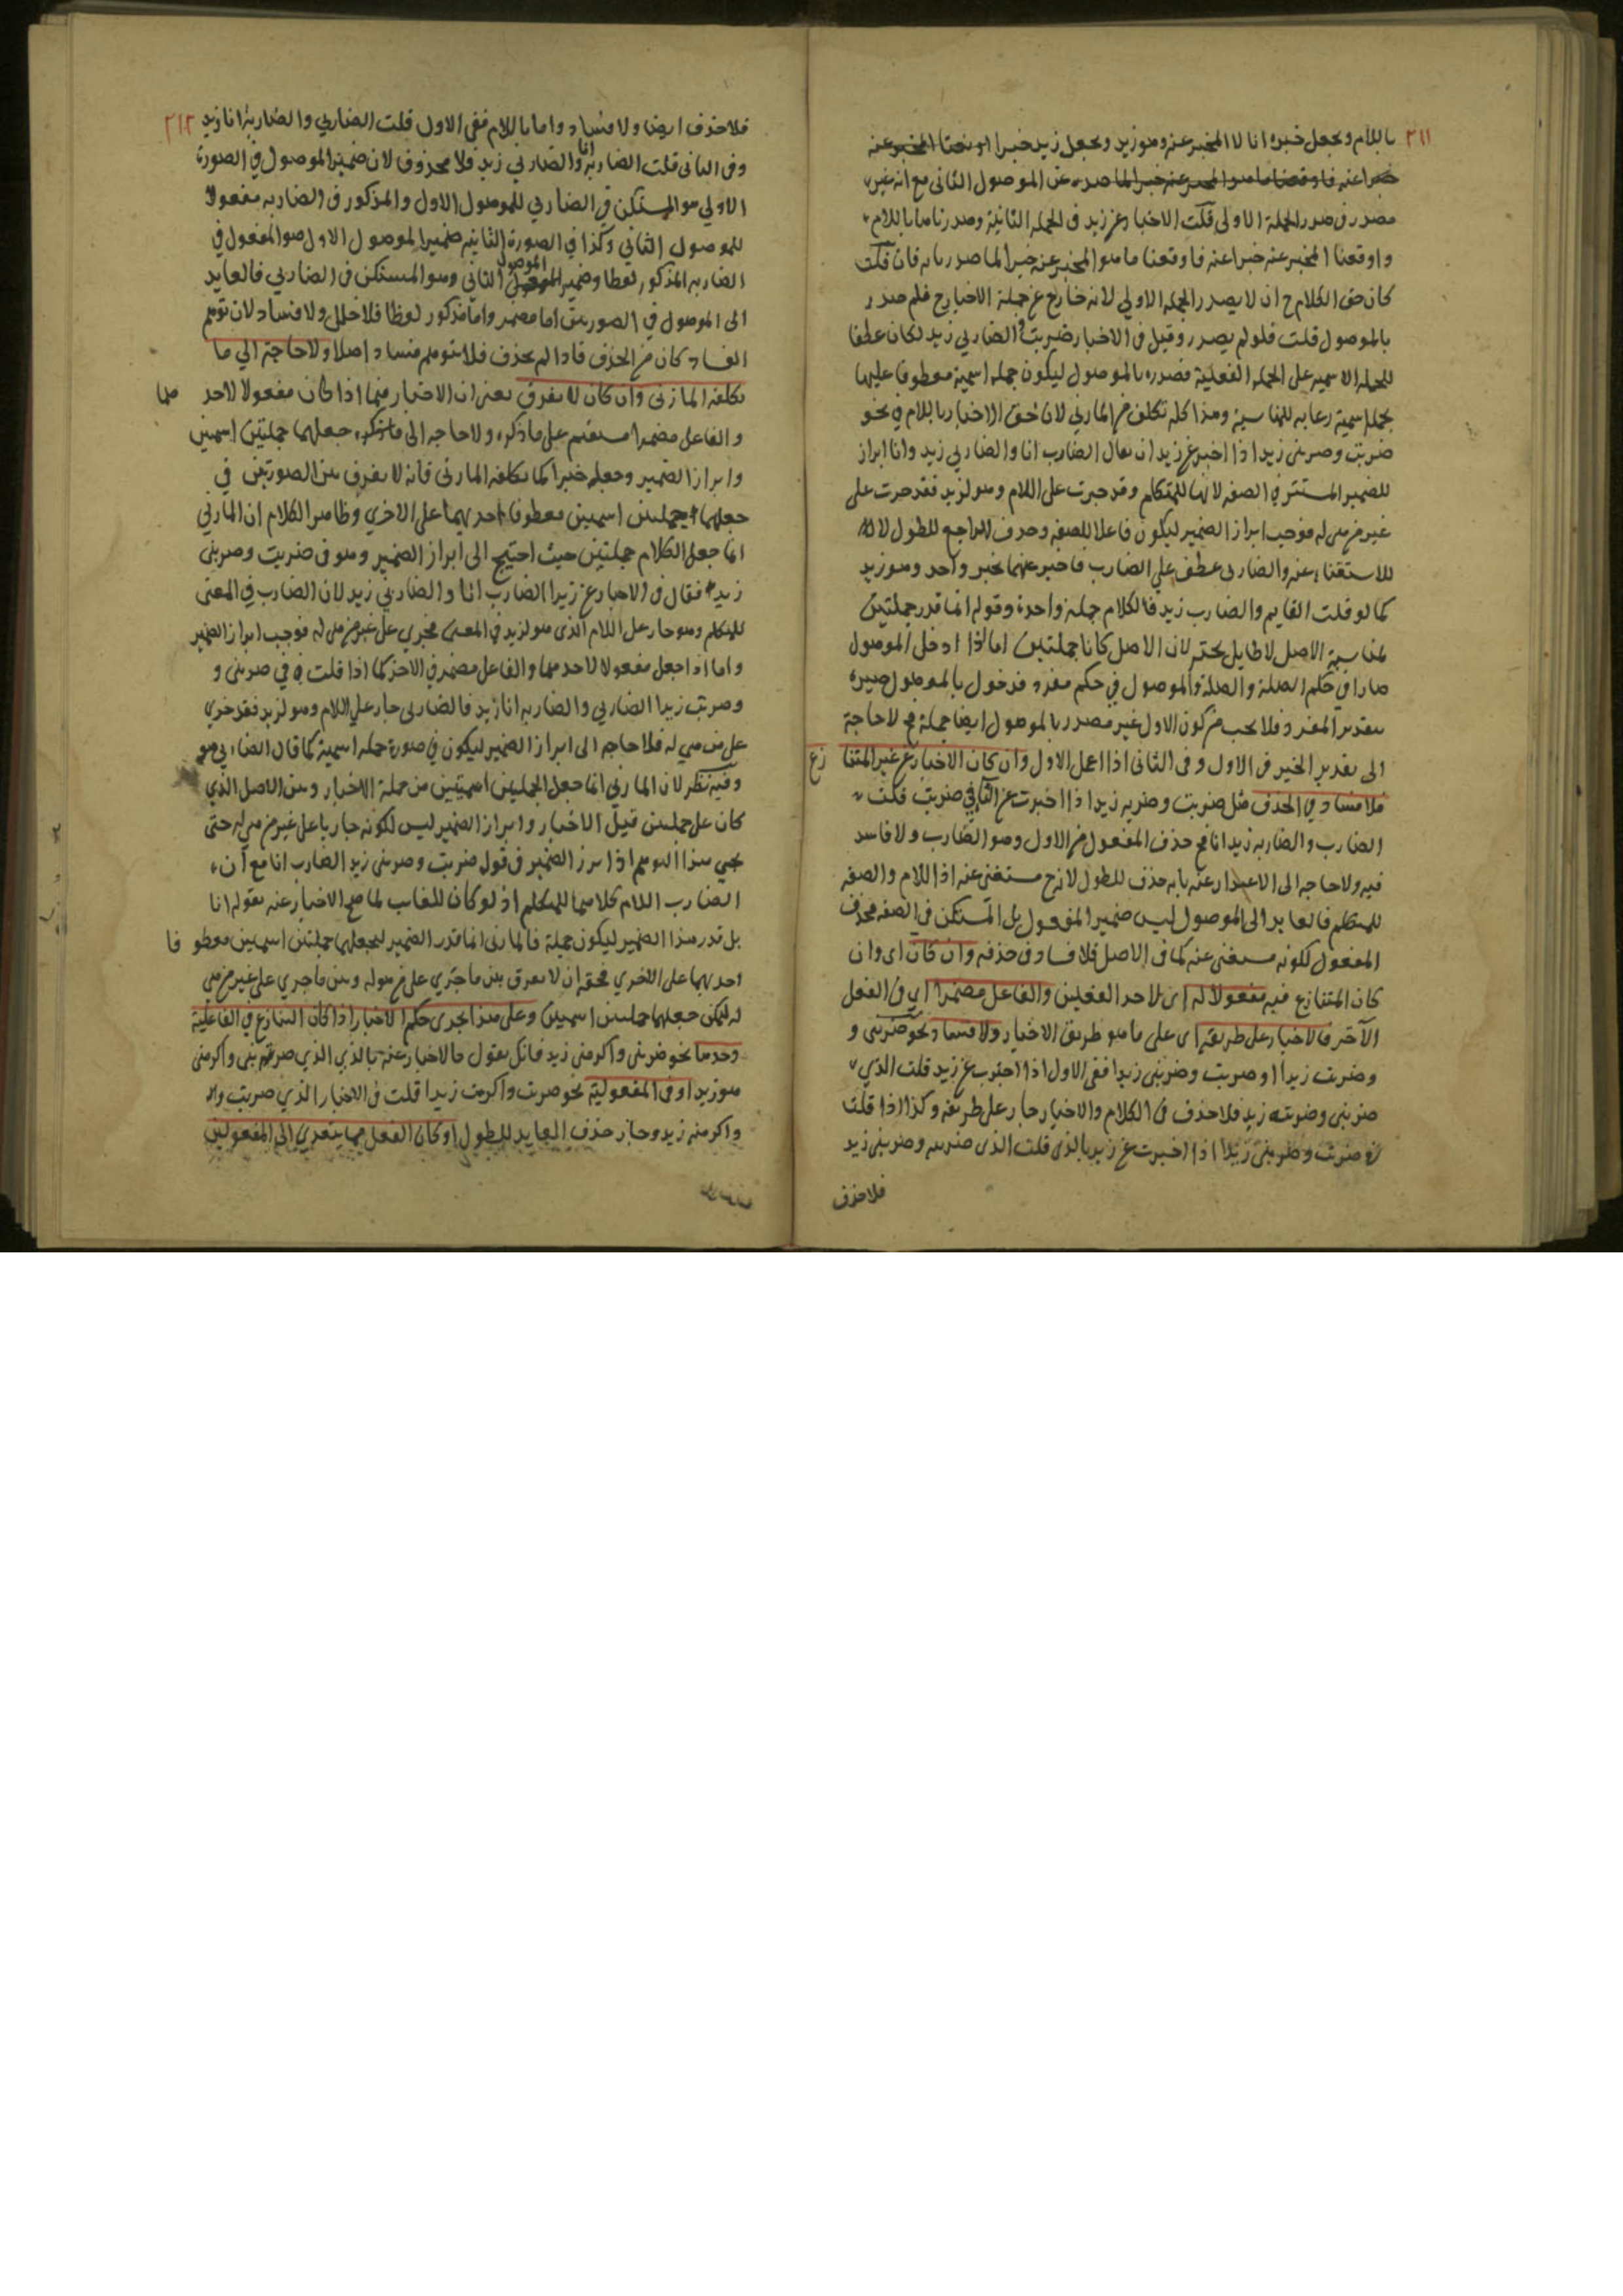 ٢١١
باللام وبجعل خبره انا لا المخبر عنه وهو زيد وبجعل زيد خبرا المخبر عنه
خبرا عنه عن الموصول الثانى مع انه غير
مصدر فى صدر الجملة الاولى قلت الاخبار عن زيد فى الجملة الثانية وصدرناها باللام
واوقعنا المخبر عنه خبرا عنه فاوقعنا ما هو المخبر عنه خبرا لما صدر بابه فان قلت
كان حق الكلام ح ان لا يصدر الجمله الاولي لانه خارج عن جملة الاخبار ح فلم صدر
بالموصول قلت فلو لم يصدر وقيل فى الاخبار ضربت والضاربي زيد لكان عطفا
للجمله الاسميه على الجمله الفعلية فصدره بالموصول ليكون جمله اسمية معطوفا عليها
بجملة اسمية رعايه للمناسبة وهذا كله تكلف من المازني لان حق الاخبار باللام في نحو
ضربت وضربنى زيد اذا اخبر عن زيد ان يقال الضارب انا والضاربي زيد وانا ابراز
للضمير المستتر في الصفه لانها للمتكلم وقد جرت على اللام وهو لزيد فقد جرت على
غير من هى له فوجب ابراز الضمير ليكون فاعلا للصفه وحذف الراجع للطول لا
للاستغناء عنه والضاربى عطف علي الضارب فاخبر عنهما بخبر واحد وهو زيد
كما لو قلت القايم والضارب زيد فالكلام جملة واحدة وقوله انما قدر جملتين
لمناسبة الاصل لا طايل تحته لان الاصل كانا جملتين اما اذا ادخل الموصول
صارا في حكم الصلة والصلة والموصول في حكم مفرد فدخول بالموصول صيره
بتقدير المفرد فلا يجب من كون الاول غير مصدر بالموصول ايضا جملة ح لا حاجة
الى تقدير الخبر فى الاول و فى الثانى اذا اعمل الاول وان كان الاخبار عن غير المتنا زع
فلا فساد في الحذف مثل ضربت وضربه زيد اذا اخبرت عن التا في ضربت قلت
الضارب والضاربه زيد انا ح حذف المفعول من الاول وهو الضارب ولا فاسد
فيه ولا حاجه الى الاعتذار عنه بانه حذف للطول لانه ح مستغنى عنه اذ اللام والصفه
للمتكلم فالعايد الى الموصول ليس ضمير المفعول بل المستكن في الصفه فحذف
المفعول لكونه مستغنى عنه كما فى الاصل فلا فساد فى حذفه وان كان اى وان
كان المتنازع فيه مفعولا له اى لاحد الفعلين والفاعل مضمرا اي فى الفعل
الآخر فالاخبار على طريقه اى على ما هو طريق الاخبار ولا فساد نحو ضربنى و
وضربت زيدا او ضربت وضربنى زيدا ففى الاول اذا اخبرت عن زيد قلت الذي
ضربنى وضربته زيد فلا حذف فى الكلام والاخبار جار على طريقه وكذا اذا قلت
فى ضربت وضربنى زيدا اذا اخبرت عن زيد بالذى قلت الذى ضربته وضربنى زيد
فلا حذف
٢١٢
فلا حذف ايضا ولا فساد واما باللام ففى الاول قلت الضاربي والضاربه انا زيد
وفى الثانى قلت الضاربه انا والضاربي زيد فلا محذوف لان ضمير الموصول في الصورة
الاولي هو المستكن في الضاربي للموصول الاول والمذكور فى الضاربه مفعولا
للموصول الثاني وكذا في الصورة الثانيه ضمير الموصول الاول هو المفعول في
الضاربه المذكور لفظا وضمير الموصول الثاني وهو المستكن فى الضاربي فالعايد
الى الموصول في الصورتين اما مضمر واما مذكور لفظا فلا خلل ولا فساد لان توهم
الفساد كان من الحذف فاذا لم يحذف فلا يتوهم فساد اصلا ولا حاجة الي ما
تكلفه المازنى وان كان لا يفرق يعنى ان الاخبار فيما اذا كان مفعولا لاحدهما
والفاعل مضمرا مستقيم على ما ذكره ولا حاجه الى ما ذكره جعلهما جملتين اسميتين
وابراز الضمير وجعله خبرا كما تكلفه المازني فانه لا يفرق بين الصورتين في
جعلهما جملتين اسميتين معطوفا احديهما على الاخري وظاهر الكلام ان المازني
انما جعل الكلام جملتين حيث احتيج الى ابراز الضمير وهو فى ضربت وضربنى
زيد فقال فى الاخبار عن زيد الضارب انا والضاربي زيد لان الضارب في المعنى
للمتكلم وهو جار على اللام الذى هو لزيد في المعنى فجرى على غير من هى له فوجب ابراز الضمير
واما اذا جعل مفعولا لاحدهما والفاعل مضمر في الاخر كما اذا قلت في ضربنى و
وضربت زيدا الضاربي والضاربه انا زيد فالضاربى جار علي اللام وهو لزيد فقد جري
على من هي له فلا حاجه الى ابراز الضمير ليكون في صورة جمله اسمية كما قال الضاربي هو
وفيه نظر لان المازنى انما جعل الجملتين اسميتين من جملة الاخبار وبين الاصل الذي
كان على جملتين قبل الاخبار وابراز الضمير ليس لكونه جاريا على غير من هي له حتى
يجي هذا التوهم اذ ابرز الضمير فى قول ضربت وضربنى زيد الضارب انا مع ان
الضارب اللام كلاهما للمتكلم اذ لو كان للغايب لما صح الاخبار عنه بقوله انا
بل قدر هذا الضمير ليكون جملة فالمازنى انما قدر الضمير ليجعلهما جملتين اسميتين معطوفا
احديهما على الاخري فحقه ان لا يفرق بين ما جري على من هو له وبين ما جري على غير من هي
له ليمكن جعلهما جملتين اسميتين وعلى هذا يجرى حكم الاخبار اذا كان التنازع في الفاعلية
وحدها نحو ضربنى واكرمنى زيد فانك تقول فى الاخبار عنه بالذي الذي ضربنى واكرمنى
هو زيد او فى المفعولية نحو ضربت واكرمت زيدا قلت فى الاخبار الذي ضربت
واكرمته زيد وجاز حذف العايد للطول او كان الفعل مما يتعدي الى المفعولين